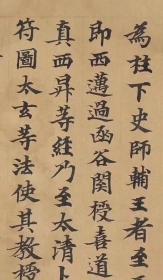 為柱下史師輔王者至
即西邁過函谷關授喜道
真西昇等經乃至太清上
符圖太玄等法使其教授